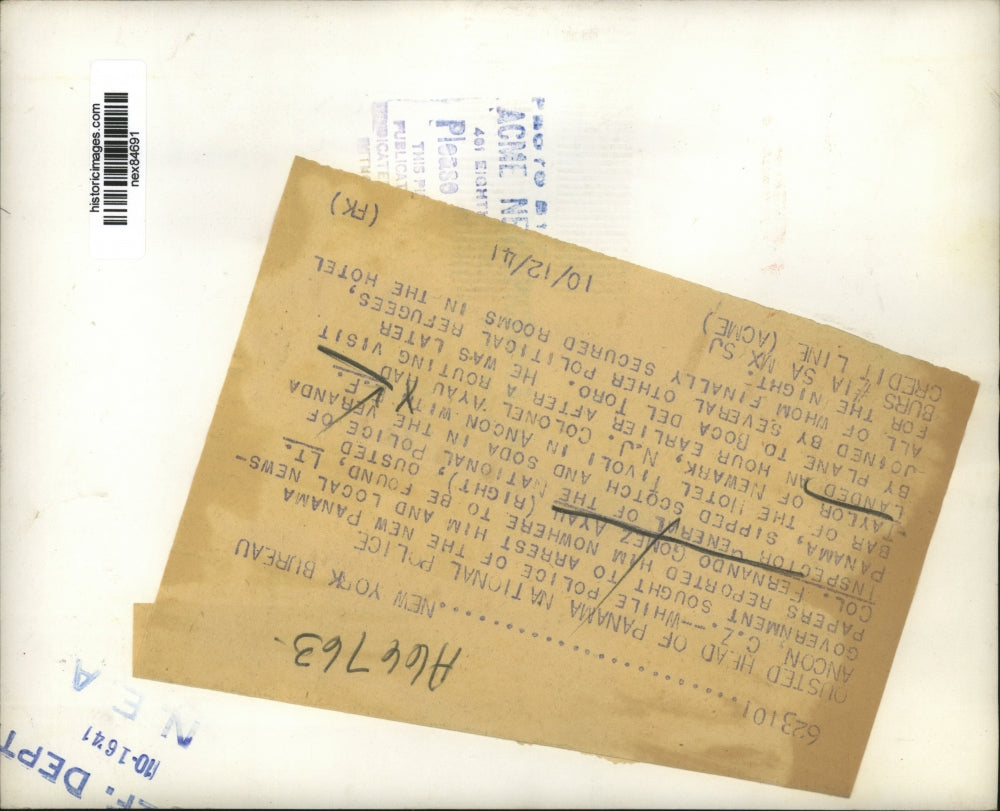 historicimages.com
nex84691
PHOTO BY
ACME NE
461 EIGHTH
Please
THIS PI
PUBLICAT
A667763-
623101............NEW YORK BUREAU
OUSTED HEAD OF PANAMA NATIONAL POLICE
ANCON, C.Z.---WHILE POLICE OF THE NEW PANAMA
GOVERNMENT SOUGHT TO ARREST HIM AND LOCAL NEWS-
PAPERS REPORTED HIM NOWHERE TO BE FOUND, LT.
COL. FERNANDO GOMEZ AYAU (RIGHT), OUSTED
INSPECTOR GENERAL OF THE NATIONAL POLICE OF
PANAMA, SIPPED SCOTCH AND SODA IN THE VERANDA
BAR OF THE HOTEL TIVOLI IN ANCON WITH L.F.
TAYLOR OF NEWARK, N.J. COLONEL AYAU HAD
LANDED AN HOUR EARLIER AFTER A ROUTING VISIT
BY PLANE TO BOCA DEL TORO. HE WAS LATER
JOINED BY SEVERAL OTHER POLITICAL REFUGEES,
ALL OF WHOM FINALLY SECURED ROOMS IN THE HOTEL
FOR THE NIGHT.
BURS ZIA SA MX SJ
CREDIT LINE (ACME) 10/12/41 (FK)
N E A
10-16 41
EF. DEPT